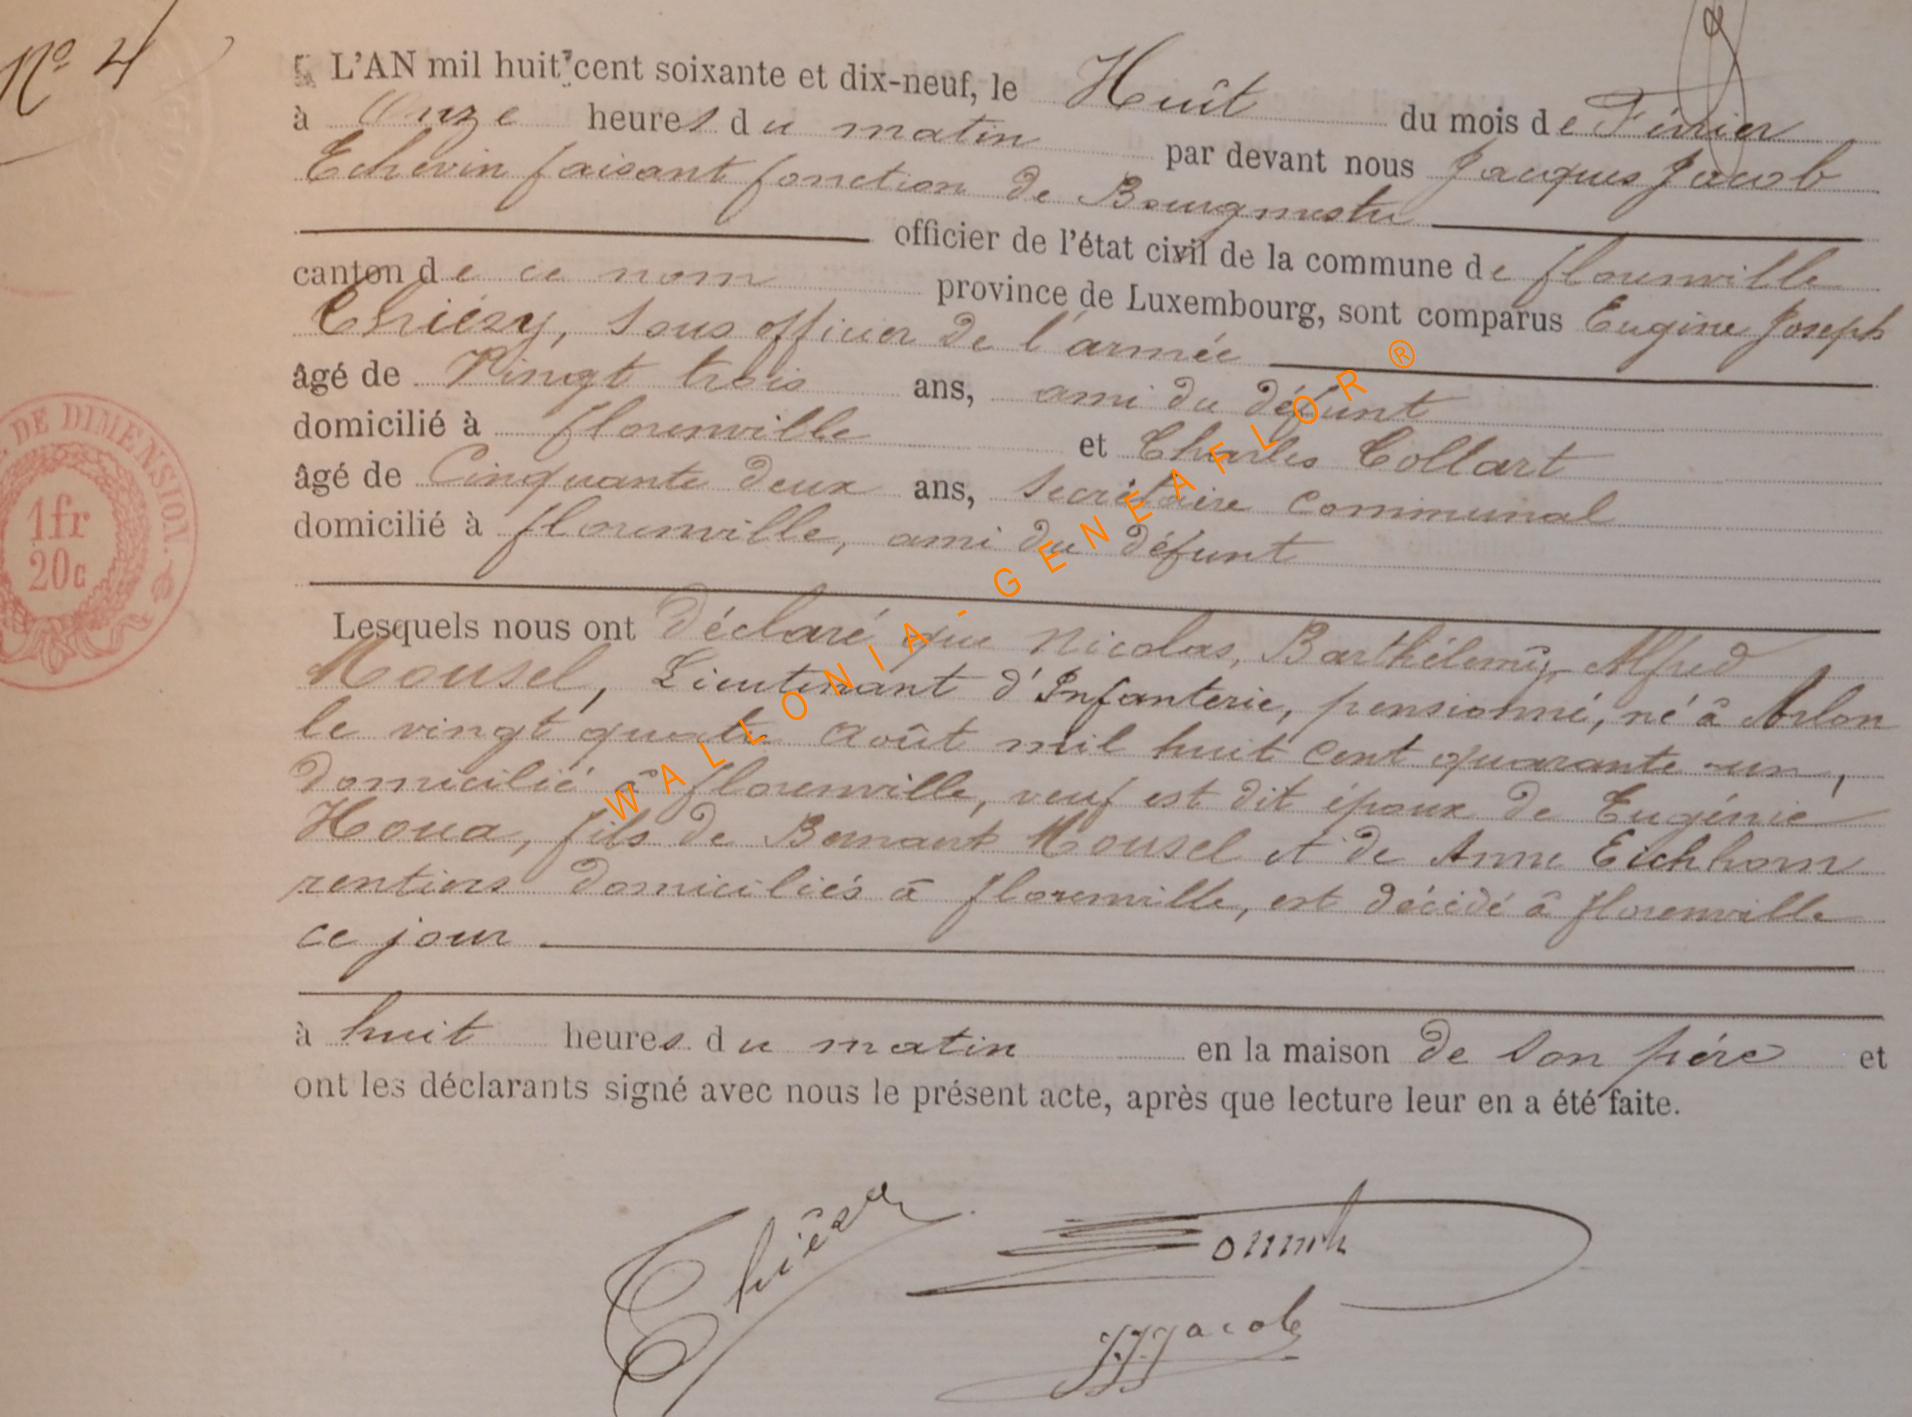 N° 4
L'AN mil huit cent soixante et dix-neuf, le Huit du mois de Février
à Onze heures du matin par devant nous Jacques Jacob
Echevin faisant fonction de Bourgmestre
officier de l'état civil de la commune de florenville
canton de ce nom province de Luxembourg, sont comparus Eugène Joseph
Thiéry, sous officier de l'armée
âgé de Vingt trois ans, ami du défunt
domicilié à florenville et Charles Collart
âgé de Cinquante deux ans, secrétaire communal
domicilié à florenville, ami du défunt
Lesquels nous ont déclaré que Nicolas, Barthélemy, Alfred
Mousel, Lieutenant d'Infanterie, pensionné, né à Arlon
le vingt quatre août mil huit cent quarante-un,
domicilié à florenville, veuf est dit époux de Eugénie
Houa, fils de Bernard Mousel et de Anne Eichhorn
rentiers domiciliés à florenville, est décédé à florenville
ce jour
à huit heures du matin en la maison de son père et
ont les déclarants signé avec nous le présent acte, après que lecture leur en a été faite.
Thiéry
JJJacob
DE DIMENSION.
1fr
20c
WALLONIA-GENEAFLOR ®